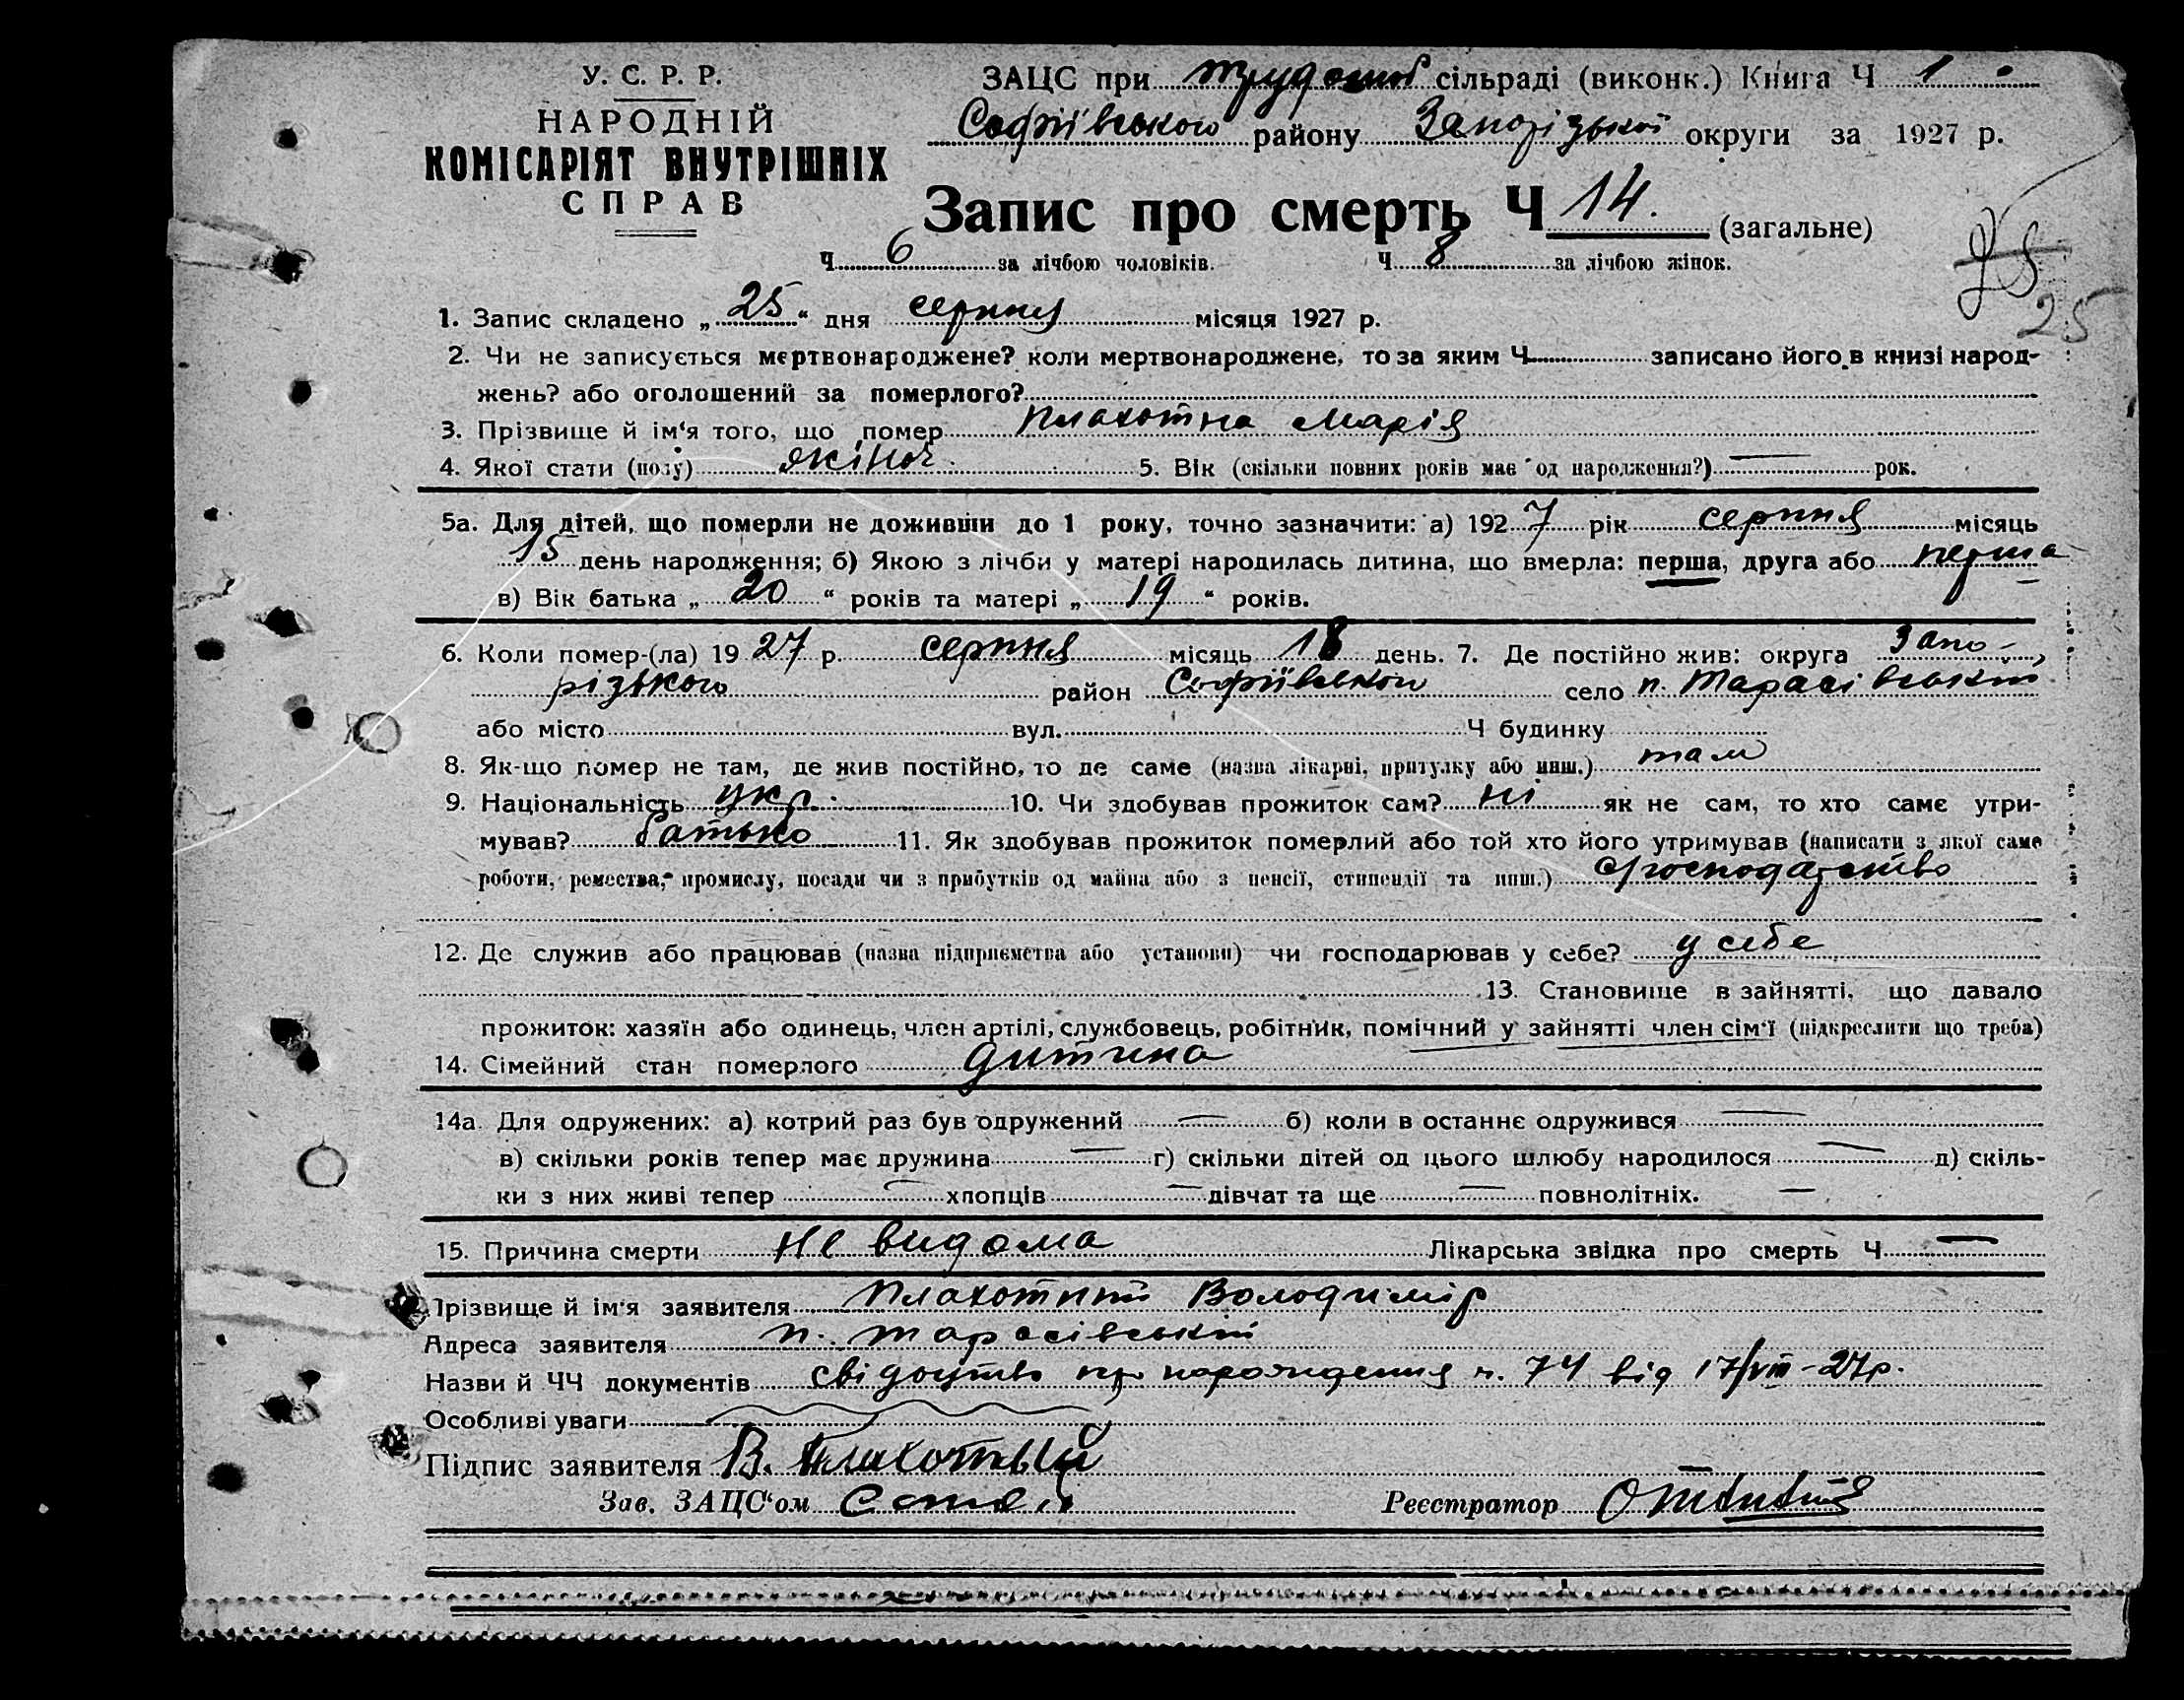 У. С. Р. Р.
НАРОДНІЙ
КОМІСАРІЯТ ВНУТРІШНІХ
СПРАВ
ЗАЦС при сільраді (виконк.) Книга Ч 1
Софіївського району Запорізької округи за 1927 р.
Запис про смерть Ч 14. (загальне)
Ч 6 за лічбою чоловіків. Ч 8 за лічбою жінок.
25
25
1. Запис складено „ 25 “ дня серпня місяця 1927 р.
2. Чи не записується мертвонароджене? коли мертвонароджене, то за яким Ч записано його в книзі народ-
жень? або оголошений за померлого?
3. Прізвище й ім‘я того, що помер Плахотна Марія
4. Якої стати (полу) жіноч. 5. Вік (скільки повних років має од народження?) — рок.
5а. Для дітей, що померли не доживши до 1 року, точно зазначити: а) 1927 рік серпня місяць
15 день народження; б) Якою з лічби у матері народилась дитина, що вмерла: перша, друга або перша
в) Вік батька „ 20 “ років та матері „ 19 “ років.
6. Коли помер-(ла) 1927 р. серпня місяць 18 день. 7. Де постійно жив: округа Запо-
різького район Софіївськом село п. Тарасівський
або місто вул. Ч будинку
8. Як-що помер не там, де жив постійно, то де саме (назва лікарні, притулку або инш.) там
9. Національність укр. 10. Чи здобував прожиток сам? ні як не сам, то хто саме утри-
мував? батько 11. Як здобував прожиток померлий або той хто його утримував (написати з якої саме
роботи, ремества, промислу, посади чи з прибутків од майна або з пенсії, стипендії та инш.) с/господарство
12. Де служив або працював (назва підприємства або установи) чи господарював у себе? у себе
13. Становище в зайнятті, що давало
прожиток: хазяїн або одинець, член артілі, службовець, робітник, помічний у зайнятті член сім‘ї (підкреслити що треба)
14. Сімейний стан померлого дитина
14а. Для одружених: а) котрий раз був одружений — б) коли в останнє одружився —
в) скільки років тепер має дружина — г) скільки дітей од цього шлюбу народилося — д) скіль-
ки з них живі тепер — хлопців — дівчат та ще — повнолітніх. —
15. Причина смерти Не видома Лікарська звідка про смерть Ч —
Прізвище й ім‘я заявителя Плахотний Володимір
Адреса заявителя п. Тарасівський
Назви й ЧЧ документів свідоцтво про народження ч. 74 від 17/VIII-27р.
Особливі уваги
Підпис заявителя В. Плахотный
Зав. ЗАЦС‘ом Реєстратор